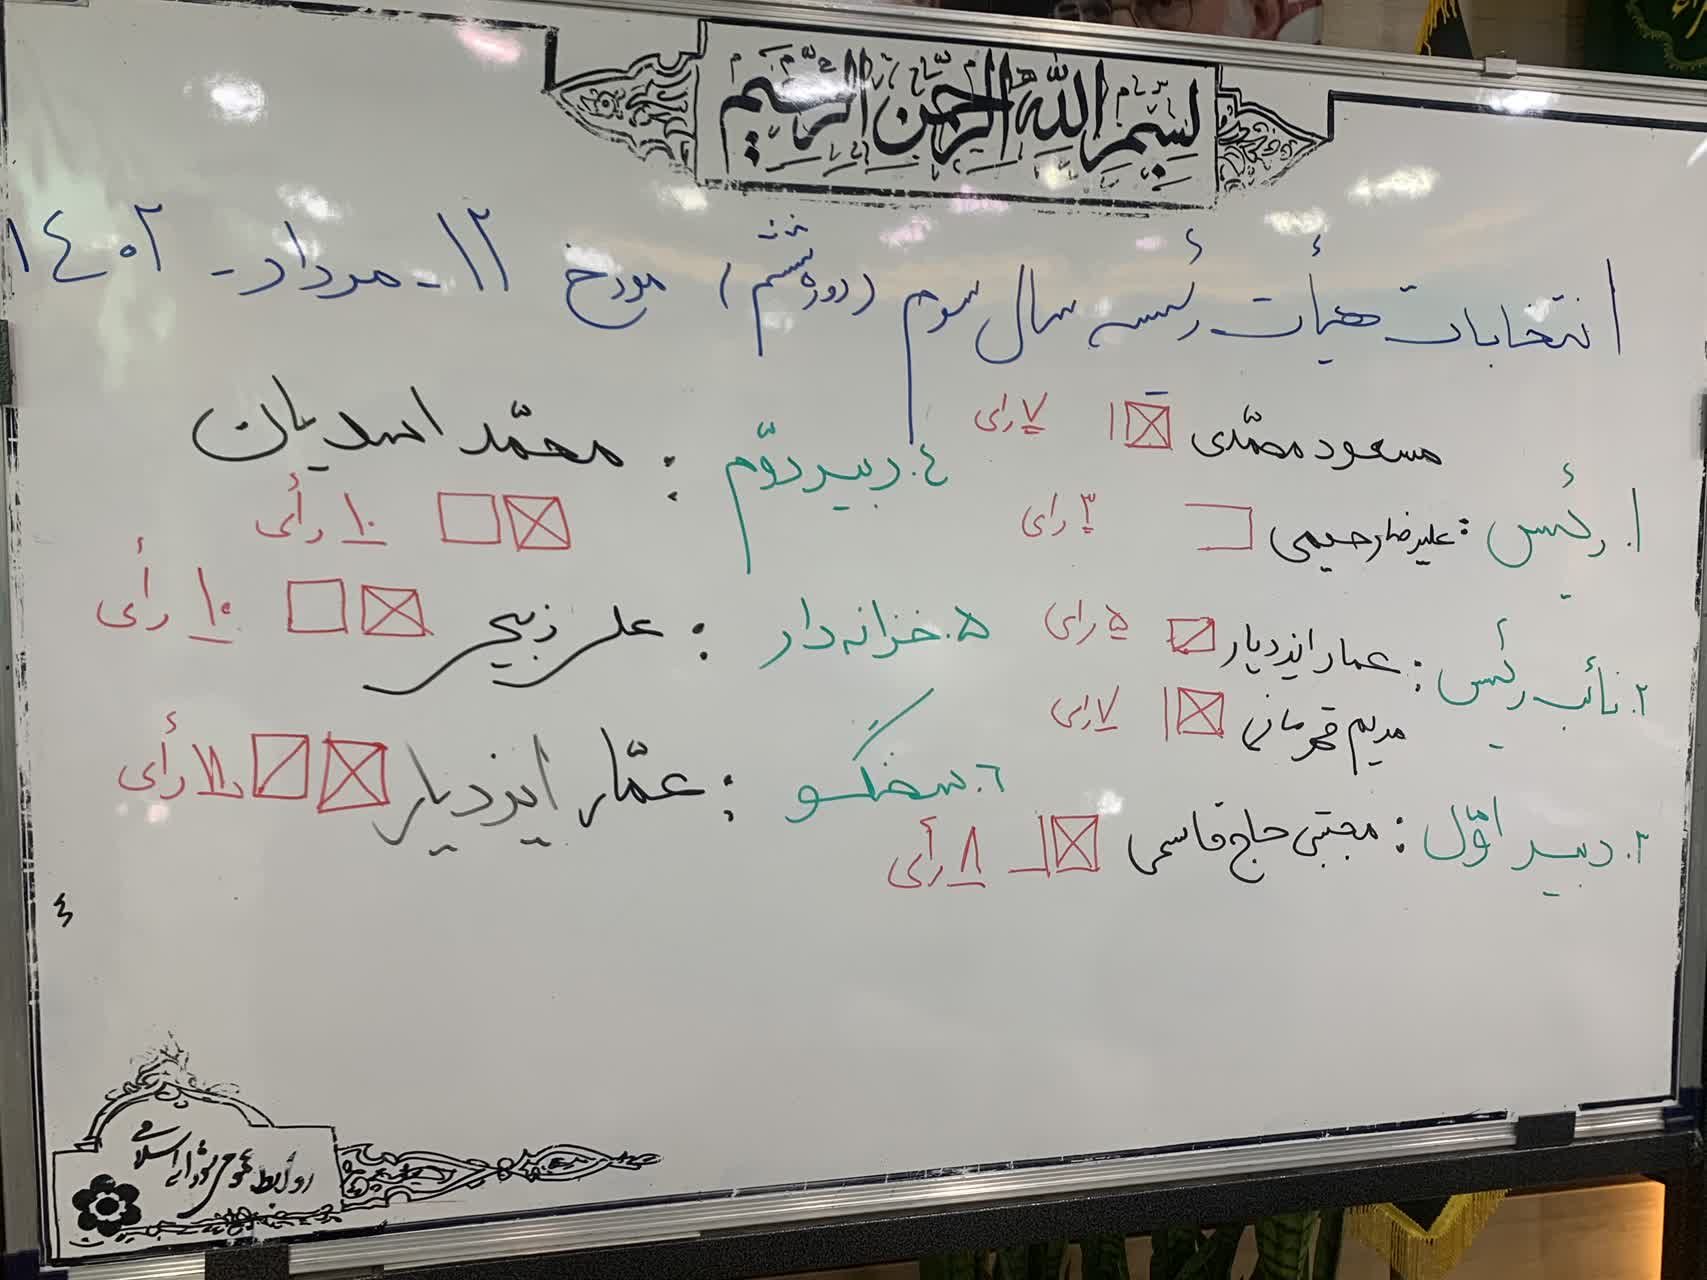 بسم الله الرحمن الرحیم
انتخابات هیأت رئیسه سال سوم (دوره ششم) مورخ ۱۲ـ مرداد ـ ۱۴۰۲
مسعود مصمّدی ۷ رای
۱. رئیس : علیرضا رحیمی ۳ رای
۲. نائب رئیس : عمار ایزدیار ۵ رای
مریم قهرمانی ۷ رای
۳. دبیر اوّل : مجتبی حاج قاسمی ۸ رأی
۴. دبیر دوّم : محمّد اسدیان
۱۰ رأی
۵. خزانه دار : علی ذبیحی ۱۰ رأی
۶. سخنگو : عمّار ایزدیار ۱۱ رأی
۴
روابط عمومی شورای اسلامی